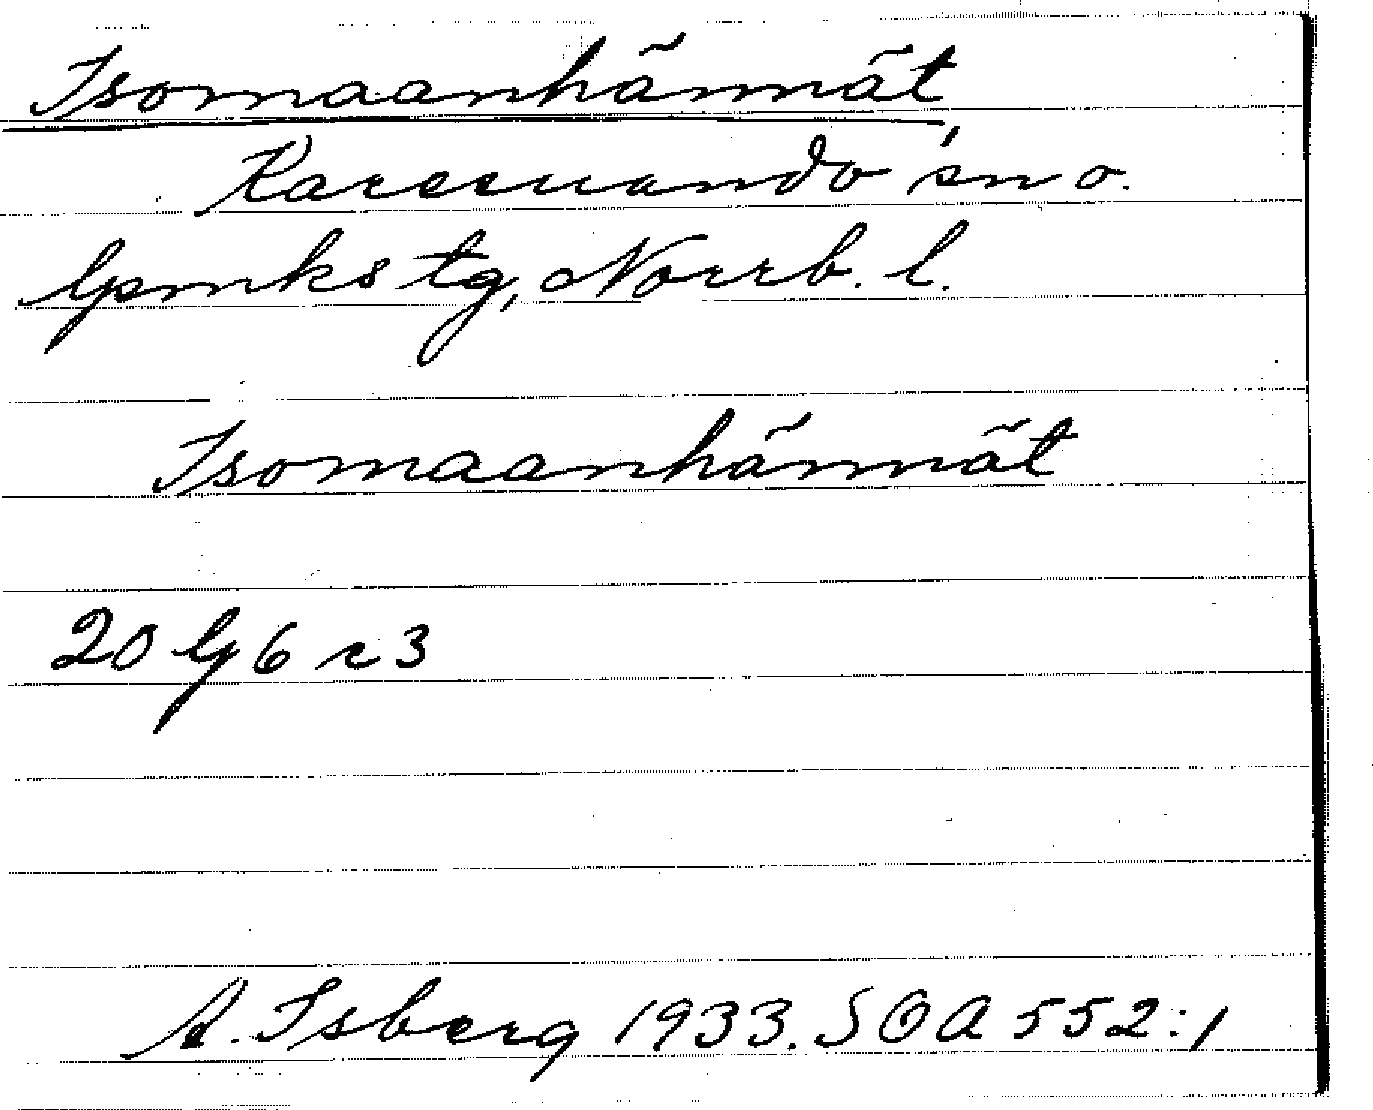 Isomaanhännät
Karesuando sn o.
lpmkstg, Norrb. l.
Isomaanhännät
A. Isberg 1933. SOA 552:1